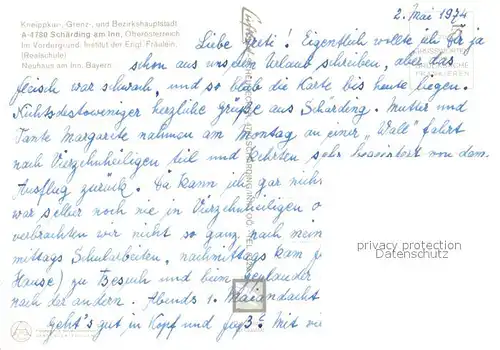 Kneippkur-, Grenz- und Bezirkshauptstadt
A-4780 Schärding am Inn, Oberösterreich
Im Vordergrund: Institut der Engl. Fräulein,
(Realschule)
Neuhaus am Inn, Bayern
2. Mai 1974
Liebe Greti! Eigentlich wollte ich Dir ja
schon aus unserem Urlaub schreiben, aber das
Fleisch war schwach, und so blieb die Karte bis heute liegen.
Nichtsdestoweniger herzliche Grüße aus Schärding. Mutter und
Tante Margarete nahmen am Montag an einer „Wall"fahrt
nach Vierzehnheiligen teil und kehrten sehr begeistert von dem
Ausflug zurück. Da kann ich gar nich
war selber noch nie in Vierzehnheiligen
verbrachten wir nicht so ganz nach
mittags Schularbeiten, nachmittags kam
Hause) zu Besuch und beim
nach der andern. Abends 1. Maiandacht
Geht's gut in Kopf und Fuß? Mit
FRANKIEREN
privacy protection
Datenschutz